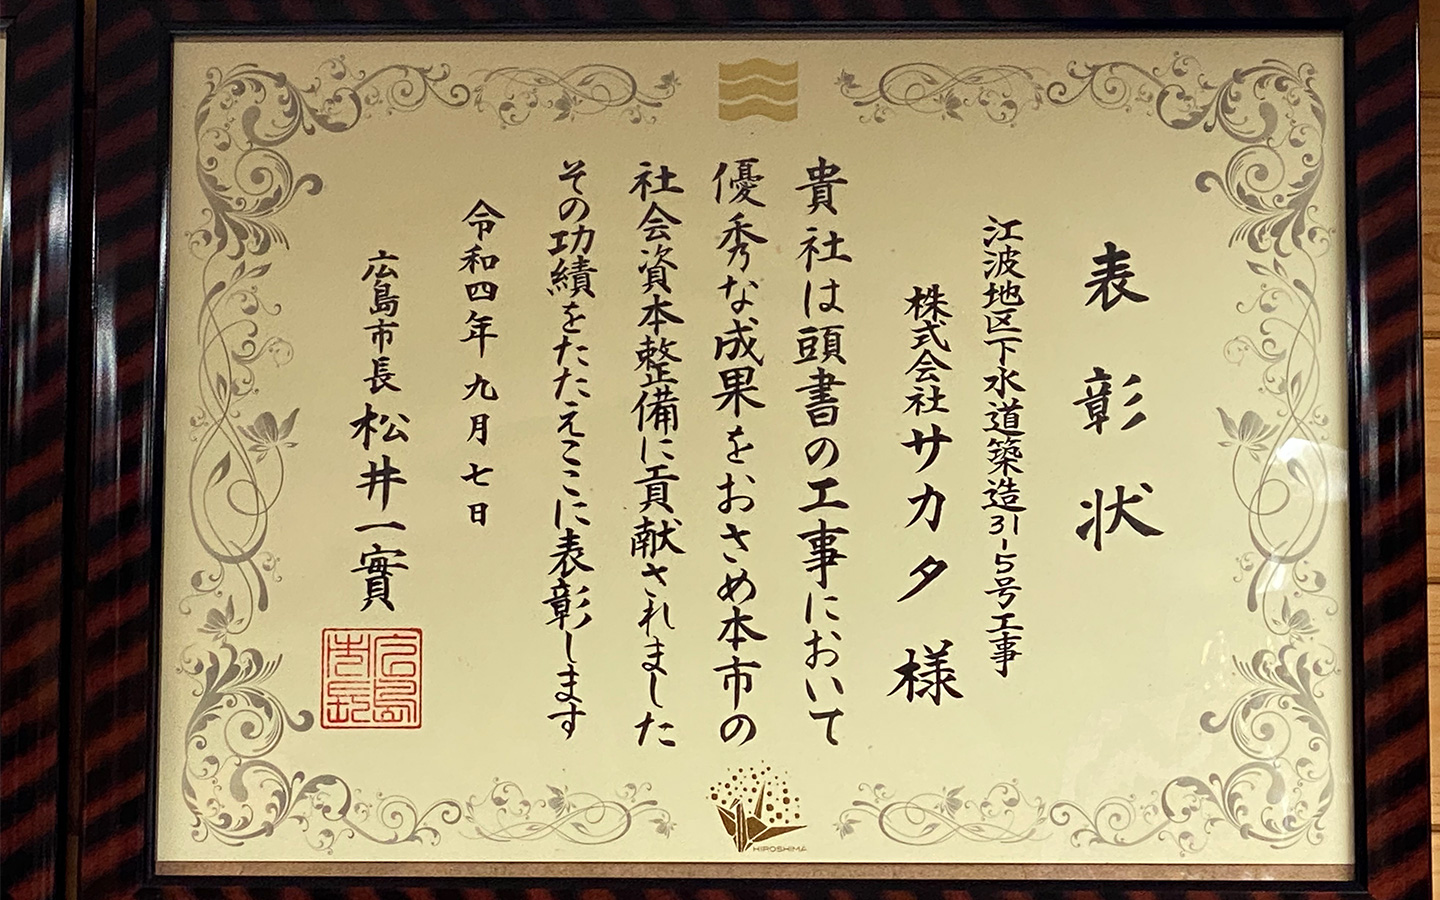 表彰状
江波地区下水道築造31-5号工事
株式会社サカタ 様
貴社は頭書の工事において
優秀な成果をおさめ本市の
社会資本整備に貢献されました
その功績をたたえここに表彰します
令和四年九月七日
広島市長 松井一實
広島市長
HIROSHIMA